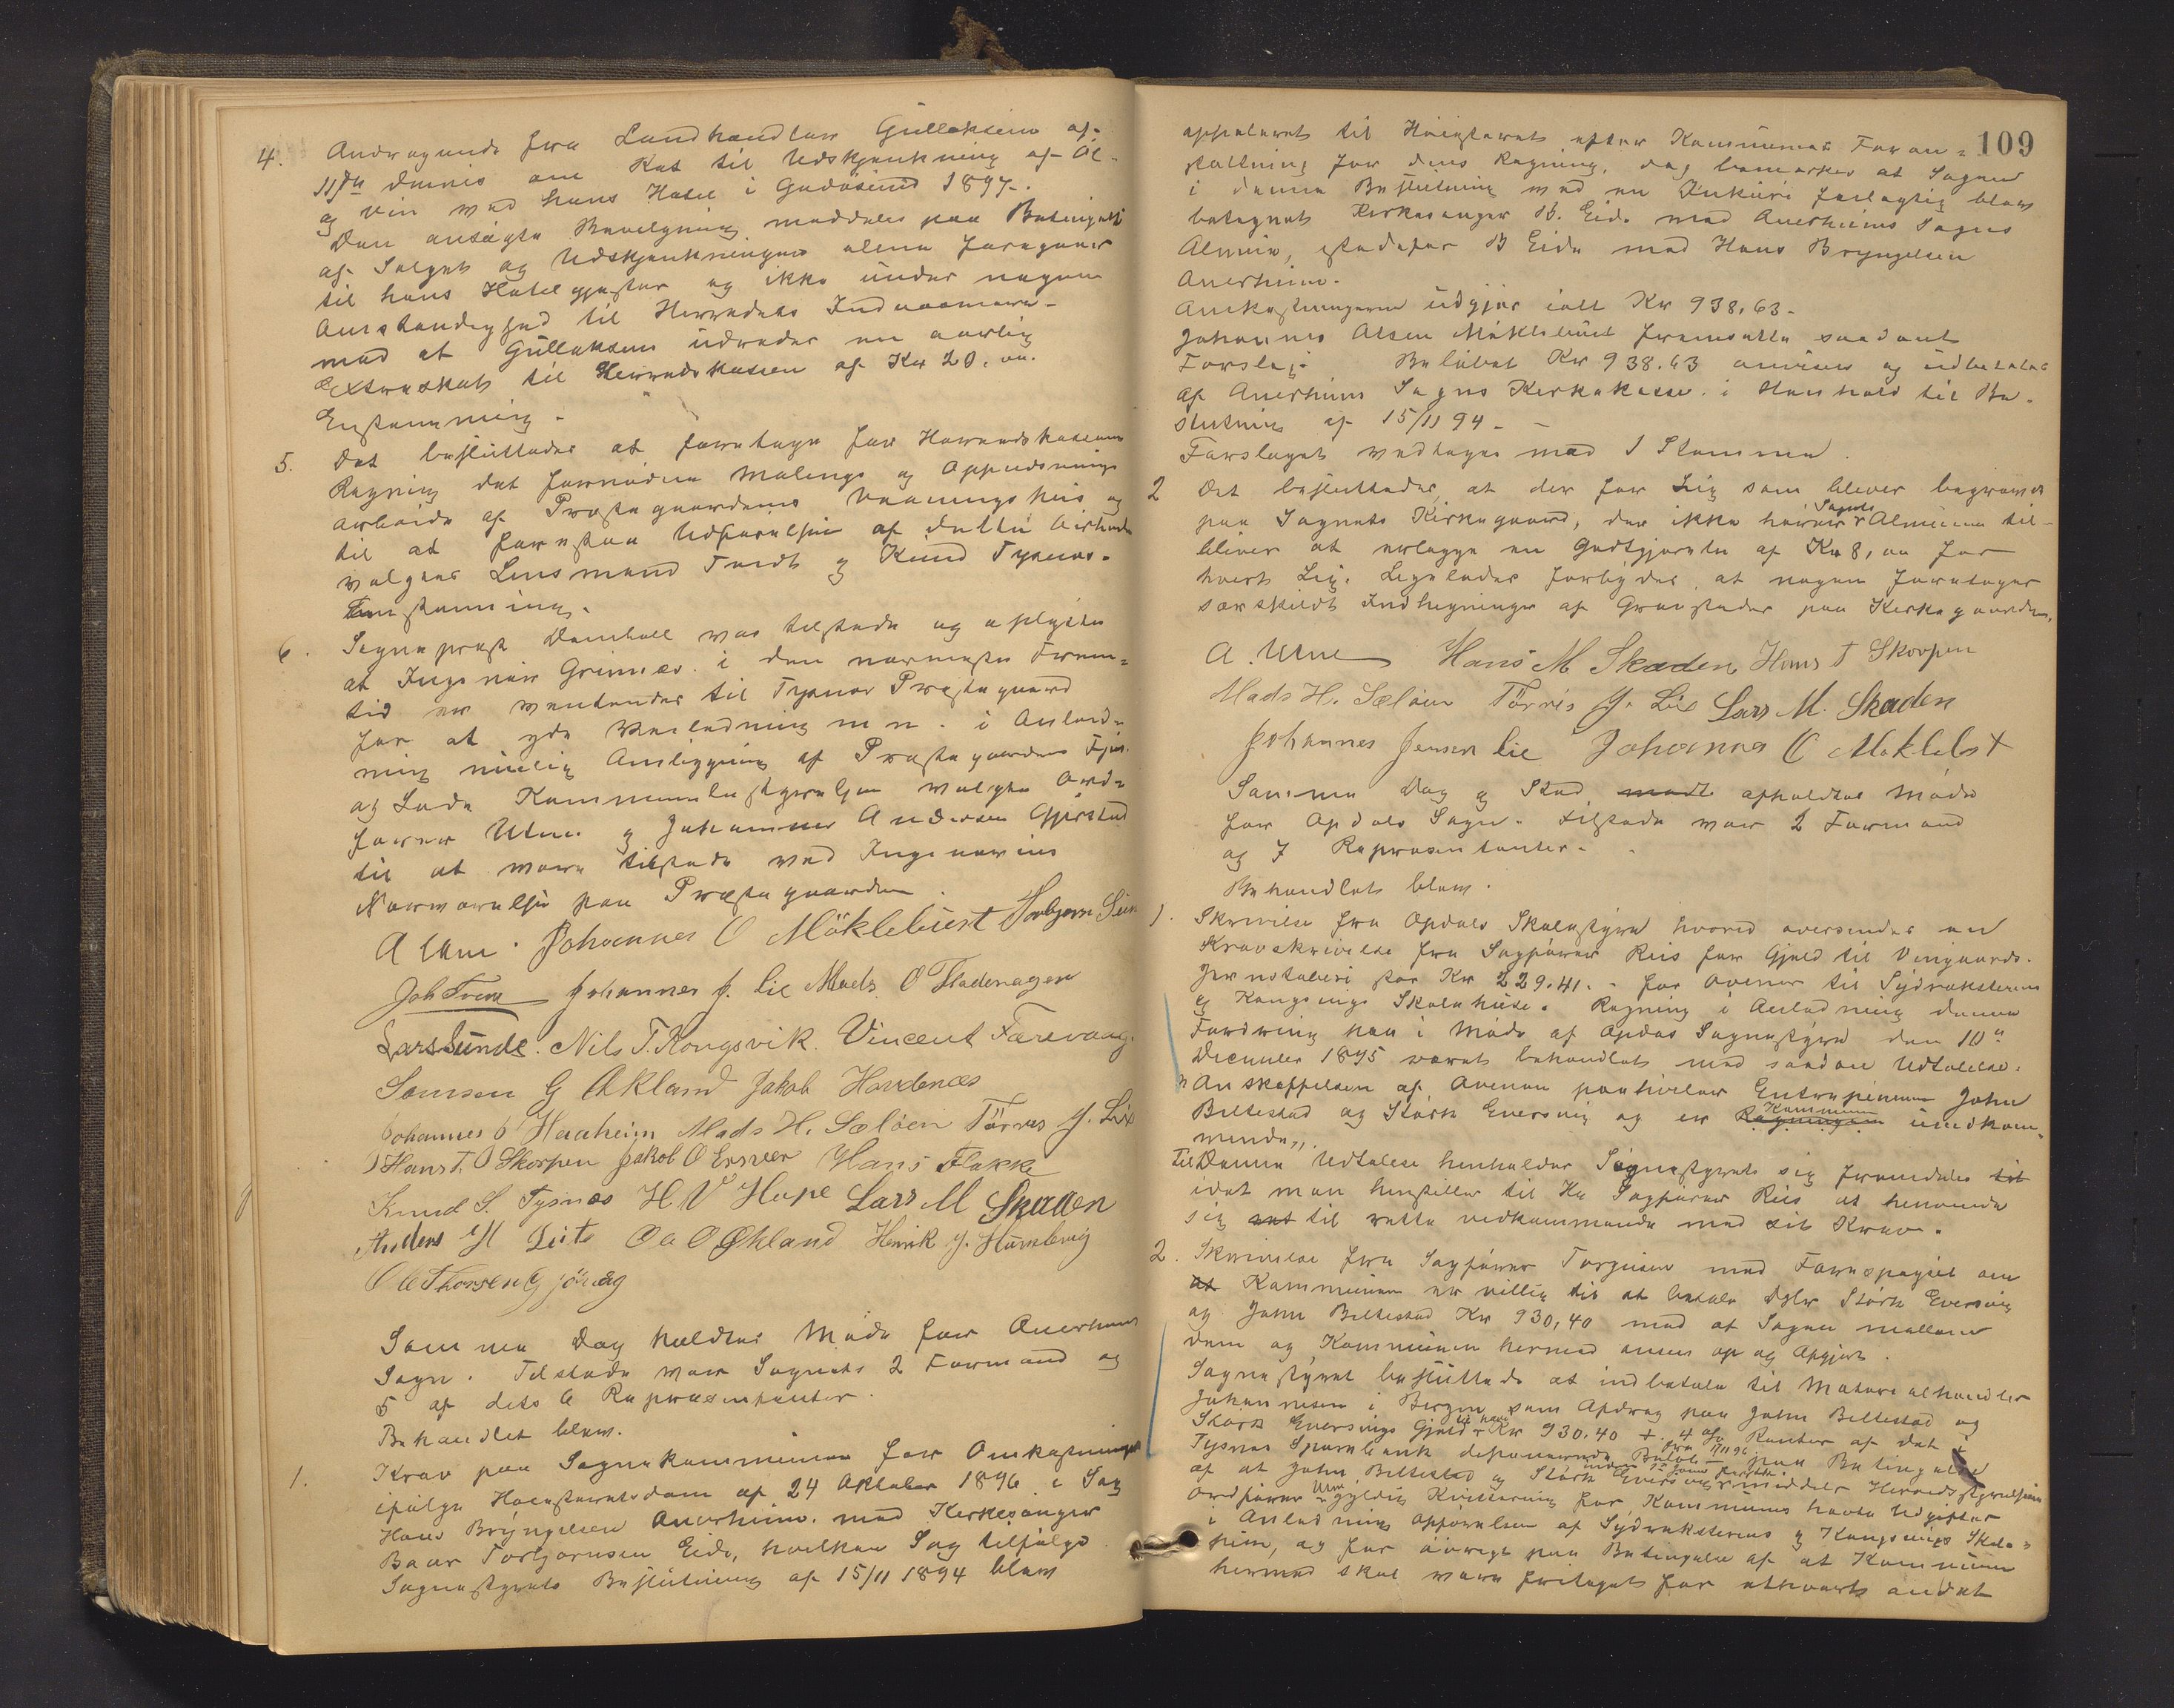 4. Andragende fra Landhandler Gullaksen af
11te dennes om Ret til Udskjenkning af Øl-
og Vin ved hans Hotel i Godøsund 1897.-
Den ansøgte Bevilgning meddeles paa Betingelse
af Salget og Udskjenkningen alene foregaaer
til hans Hotelgjester og ikke under nogen
Omstendighed til Herredets Indvaanere-
med at Gullaksen udreder en aarlig
Extraskat til Herredskassen af Kr 20.00.
Enstemmig.
5. Det besluttedes at foretage for Herredskassens
Regning det fornødne Malings og Oppudsnings
arbeide af Præstegaardens Vaaningshus og
til at forestaa Udførelsen af dette Arbeide
valgtes Lensmand Tvedt og Knud Tysnes.
Enstemmig.
6. Sogneprest Domholl var tilstede og oplyste
at Ingeniør Grimnes i den nærmeste Frem-
tid er ventendes til Tysnes Præstegaard
for at yde Veiledning m m. i Anled-
ning mulig Omlygning af Præstegaardens Fjøs
og Lade Kommunebestyrelsen valgte Ord-
fører Utne og Johannes Andersen Gjerstad
til at være tilstede ved Ingeniørens
Nærværelse paa Præstegaarden.
A Utne. Johannes O Møklebust Torbjørn
Joh Tvedt Johannes J. Lie Mads O Fladenagen
Lars Sunde. Nils T. Kongsvik. Vincent Færevaag.
Samson G Økland Jakob Hovdenæs
Johannes O Heaheim Mads H. Sæløen Tørres J. Lie
Hans T. O Skorpen Jakob O Ersvær Hans Flakke
Knud S. Tysnæs H V Hope Lars M Skaaden
Anders H Leite O a O Økland Henrik J. Humlevig
Ole Thorsen Gjøvaag
Samme Dag holdtes Møde for Onerheims
Sogn. Tilstede var Sognets 2 Formænd og
5 af dets 6 Repræsentanter.
Behandlet blev.
1. Krav paa Sognekommunen for Omkostninger
ifølge Høiesteretsdom af 24 Oktober 1896 i Sag
Hans Bryngelsen Onerheim. mod Kirkesanger
Baar Torbjørnsen Eide, hvilken Sag tilfølge
Sognestyrets Beslutning af 15/11 1894 blev
109
appeleret til Høiesteret efter Kommunens Foran-
staltning for dens Regning, dog bemærkes at Sagen
i denne Beslutning ved en Inkurie feilagtig blev
betegnet Kirkesanger B. Eide mod Onerheims Sogns
Almue, istedefor B Eide mod Hans Bryngelsen
Onerheim.
Omkostningerne udgjør ialt Kr 938,63.-
Johannes Olsen Møklebust fremsatte saadant
Forslag: Beløbet Kr 938.63 anvises og udbetales
af Onerheims Sogns Kirkekasse. i Henhold til Be-
slutning af 15/11 94.-
Forslaget vedtoges med 1 Stemme.
2 Det besluttedes, at der for Lig som bliver begravet
paa Sognets Kirkegaard, der ikke hører Sognets Almue til-
bliver at erlægge en Godtgjørelse af Kr 8,00 for
hvert Lig. Ligeledes forbydes, at nogen foretager
særskildt Indhegninger af Gravsteder paa Kirkegaarden.
A. Utne Hans M Skaaden, Hans T Skorpen
Mads H. Sæløen Tørris J. Lie Lars M. Skaaden
Johannes Jensen Lie Johannes O Møklebst
Samme Dag og Sted afholdtes Møde
for Opdals Sogn. Tilstede var 2 Formænd
og 7 Repræsentanter.
Behandlet blev.
1. Skrivelse fra Opdals Skolestyre hvorved oversendes en
Kravskrivelse fra Sagfører Riis for Gjeld til Vingaards-
Jernstøberi stor Kr 229.41.- for Ovner til Sydrekstrens
og Kongsvigs Skolehuse. Regning i Anledning denne
Fordring har i Møde af Opdas Sognestyre den 10de
December 1895 været behandlet med saadan Udtalelse.
"Anskaffelsen af Ovnene paahviler Entrepenerne John
Beltestad og Størk Eversvig og er Kommunen uvedkom-
mende".
Til Denne Udtalese henholder Sognestyret sig fremdeles
idet man henstiller til Hr Sagfører Riis at henvende
sig til rette vedkommende med sit Krav.
2. Skrivelse fra Sagfører Torgersen med Forespørgsel om
Kommunen er villig til at betale Dhr Størk Eversvig
og John Beltestad Kr 930,40 med at Sagen mellem
dem og Kommunen hermed ansees op og Afgjort.
Sognestyret besluttede at indbetale til Materialhandler
Johannesen i Bergen som Afdrag paa John Beltestad og
Størk Eversvigs Gjeld til ham Kr 930.40 + 4 % Renter af det i
Tysnes Sparebank deponerende Beløb fra 1/11 96 paa Betingelse
af at John Beltestad og Størk Eversvig meddeler Herredsstyrelsens
Ordfører Utne gyldig Kvittering for Kommunens havte Udgifter
i Anledning Opførelsen af Sydrekstrens og Kongsvigs Skole-
huse, og for øvrigt paa Betingelse af at Kommunen
hermed skal være fritaget for ethvert andet